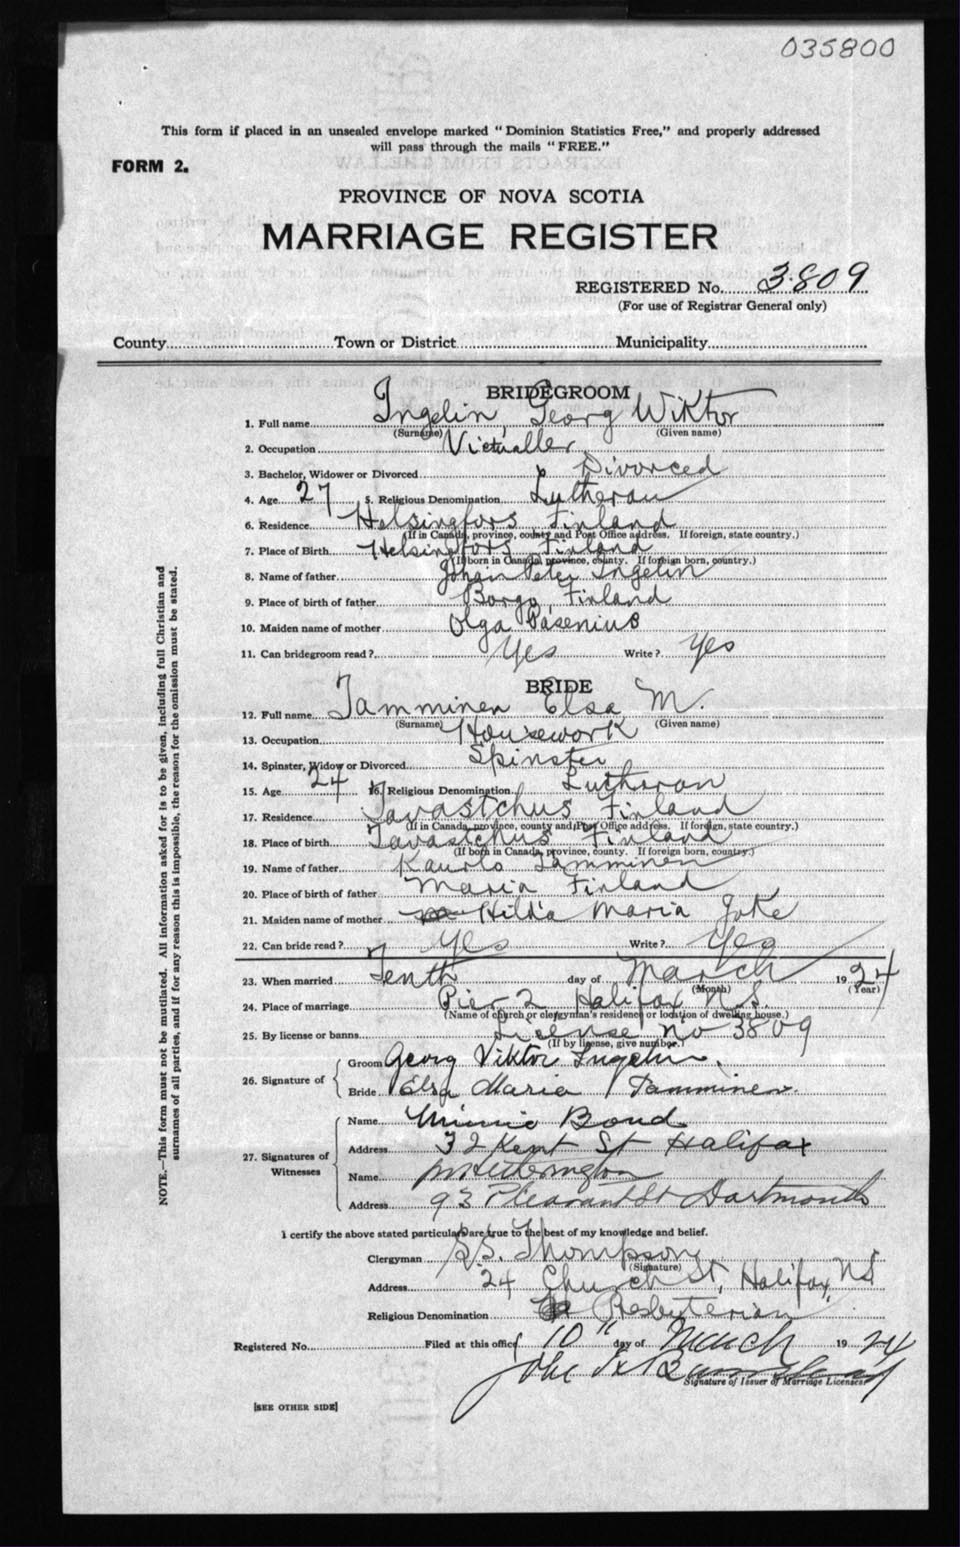 035800
This form if placed in an unsealed envelope marked "Dominion Statistics Free," and properly addressed
will pass through the mails "FREE."
FORM 2.
PROVINCE OF NOVA SCOTIA
MARRIAGE REGISTER
REGISTERED No. 3809
(For use of Registrar General only)
County Town or District Municipality
BRIDEGROOM
1. Full name Ingelin, Georg Wiktor
(Surname) (Given name)
2. Occupation Victualler
3. Bachelor, Widower or Divorced Divorced
4. Age 27 5. Religious Denomination Lutheran
6. Residence Helsingfors Finland
(If in Canada, province, county and Post Office address. If foreign, state country.)
7. Place of Birth Helsingfors Finland
(If born in Canada, province, county. If foreign born, country.)
8. Name of father Johan Peter Ingelin
9. Place of birth of father Borgo, Finland
10. Maiden name of mother Olga Pasenius
11. Can bridegroom read? Yes Write? Yes
BRIDE
12. Full name Tamminen Elsa M.
(Surname) (Given name)
13. Occupation Housework
14. Spinster, Widow or Divorced Spinster
15. Age 24 16. Religious Denomination Lutheran
17. Residence Tavastchus Finland
(If in Canada, province, county and Post Office address. If foreign, state country.)
18. Place of birth Tavastchus Finland
(If born in Canada, province, county. If foreign born, country.)
19. Name of father Kaurlo Tamminen
20. Place of birth of father Maria Finland
21. Maiden name of mother Hilda Maria Joke
22. Can bride read? Yes Write? Yes
23. When married Tenth day of March 1924
(Month) (Year)
24. Place of marriage Pier 2 Halifax N.S.
(Name of church or clergyman's residence or location of dwelling house.)
25. By license or banns License no 3809
(If by license, give number.)
26. Signature of Groom Georg Viktor Ingelin.
Bride Elsa Maria Tamminen.
27. Signatures of Witnesses
Name Minnie Bond
Address 32 Kent St Halifax
Name
Address 93 Pleasant St Dartmouth
I certify the above stated particulars are true to the best of my knowledge and belief.
Clergyman S.S. Thompson
(Signature)
Address 24 Church St, Halifax, N.S
Religious Denomination Presbyterian
Registered No. Filed at this office 10" day of March 1924
Signature of Issuer of Marriage Licenses
[SEE OTHER SIDE]
NOTE.—This form must not be mutilated. All information asked for is to be given, including full Christian and
surnames of all parties, and if for any reason this is impossible, the reason for the omission must be stated.